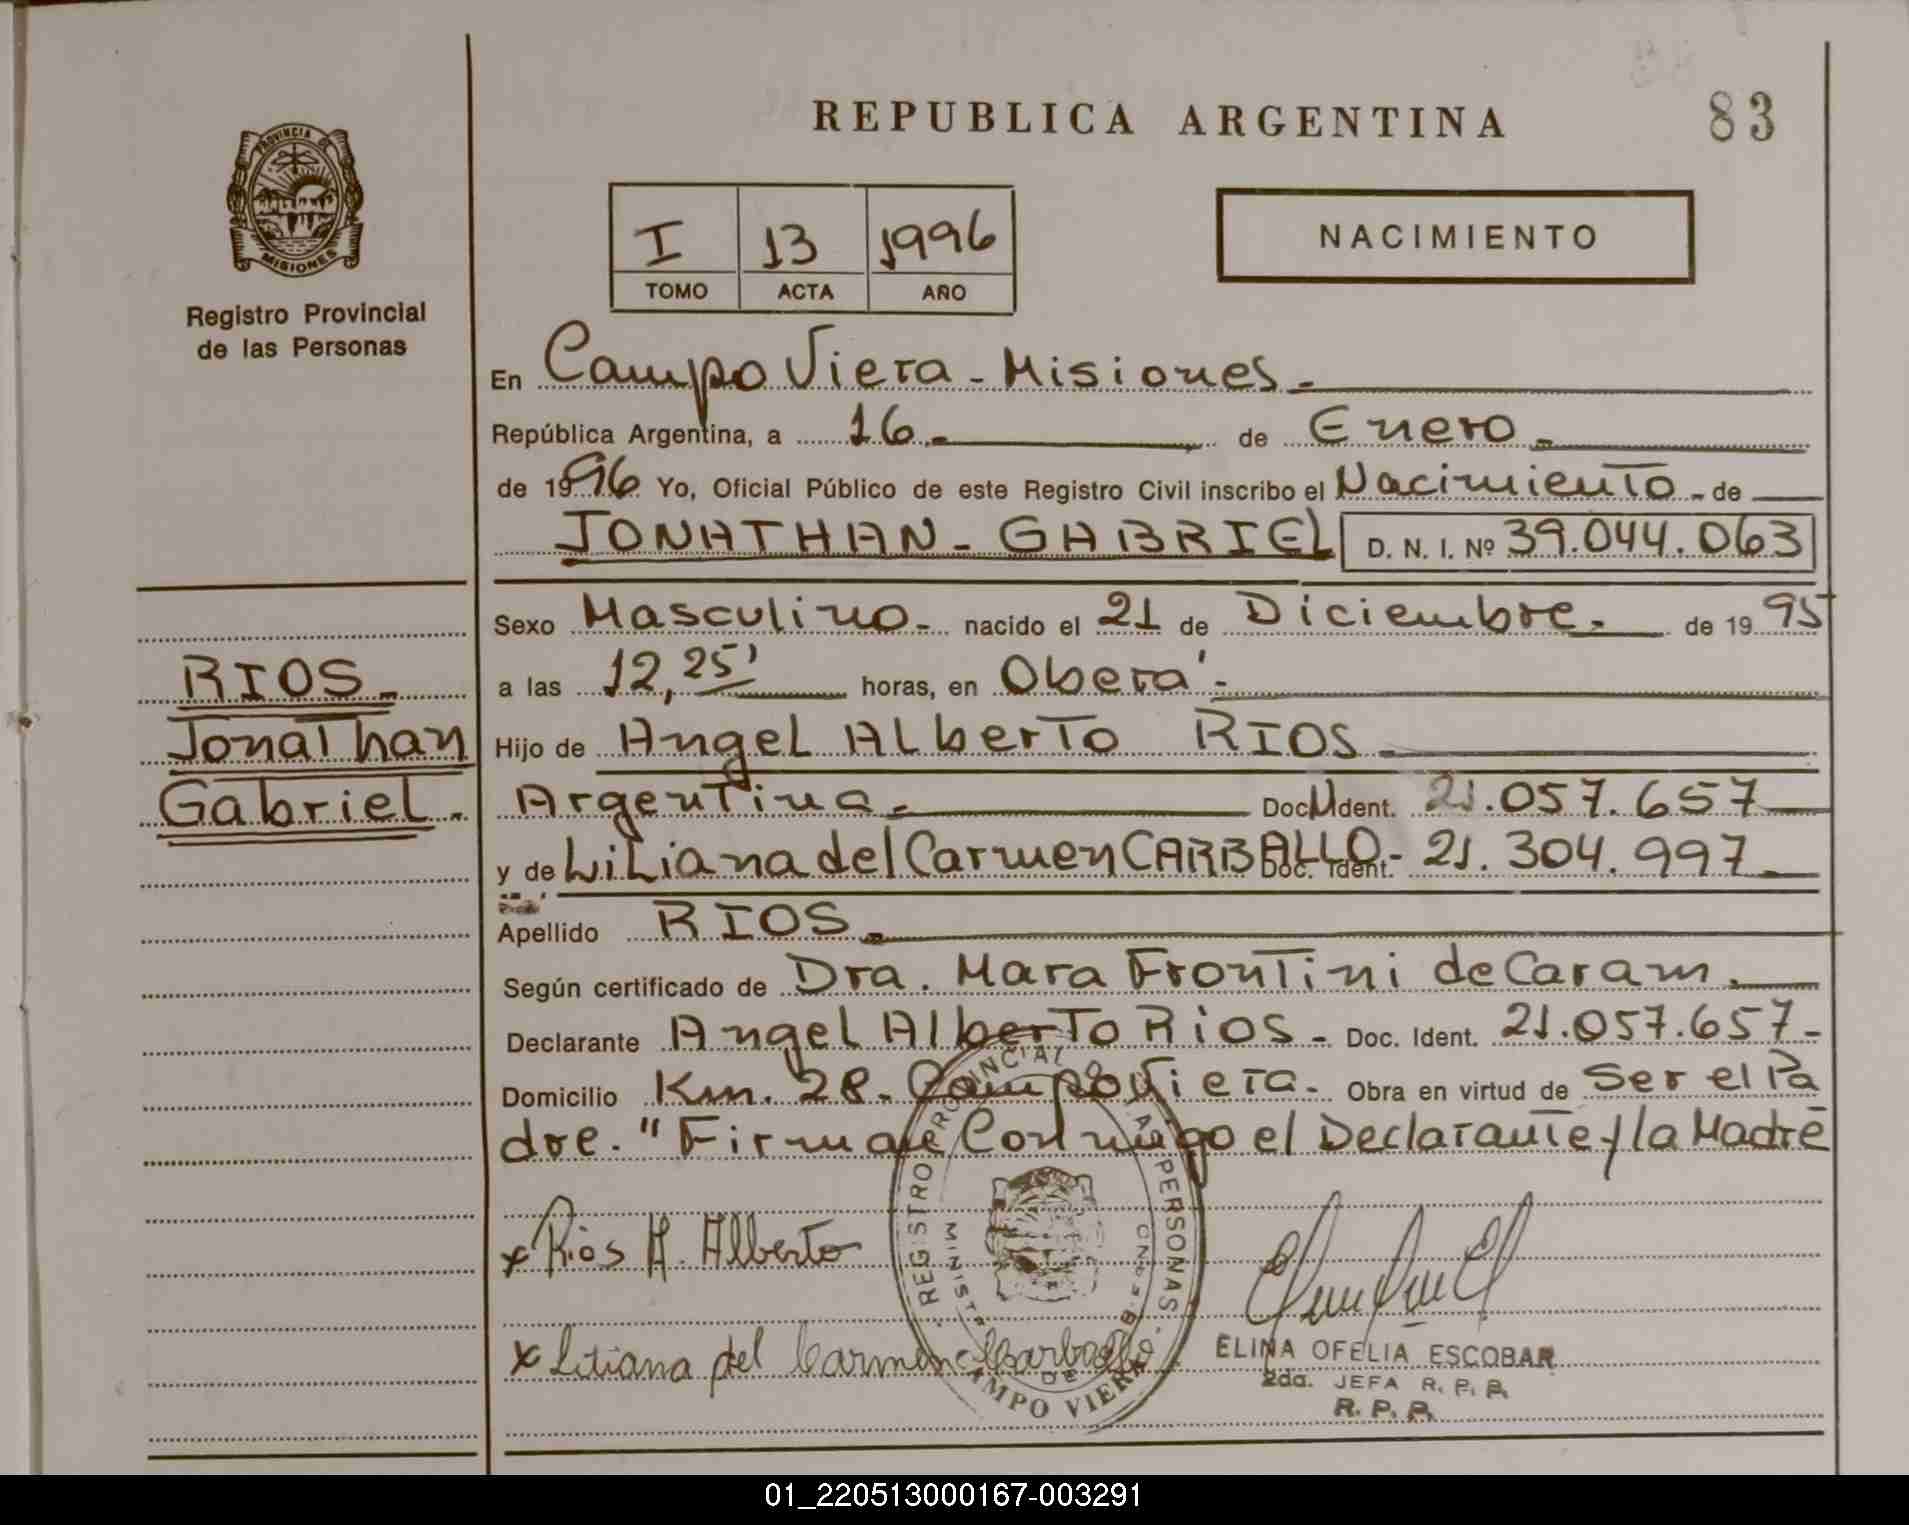 REPUBLICA ARGENTINA
83
PROVINCIA DE
MISIONES
Registro Provincial
de las Personas
I 13 1996
TOMO ACTA AÑO
NACIMIENTO
En Campo Viera - Misiones.-
República Argentina, a 16.- de Enero.-
de 1996 Yo, Oficial Público de este Registro Civil inscribo el Nacimiento - de
JONATHAN - GABRIEL D. N. I. Nº 39.044.063
Sexo Masculino.- nacido el 21 de Diciembre.- de 1995
a las 12,25' horas, en Oberá.-
Hijo de Angel Alberto RIOS.-
Argentina.- Doc. Ident. 21.057.657
y de Liliana del Carmen CARBALLO.- Doc. Ident. 21.304.997
Apellido RIOS.-
Según certificado de Dra. Mara Frontini de Caram.
Declarante Angel Alberto Rios.- Doc. Ident. 21.057.657-
Domicilio Km. 28- Campo Viera.- Obra en virtud de Ser el Pa
dre. "Firman Conmigo el Declarante y la Madre
RIOS.-
Jonathan
Gabriel.-
x Rios A. Alberto
x Liliana del Carmen Carballo
REGISTRO PROVINCIAL DE LAS PERSONAS
CAMPO VIERA
ELINA OFELIA ESCOBAR
2da. JEFA R. P. P.
R. P. P.
01_220513000167-003291